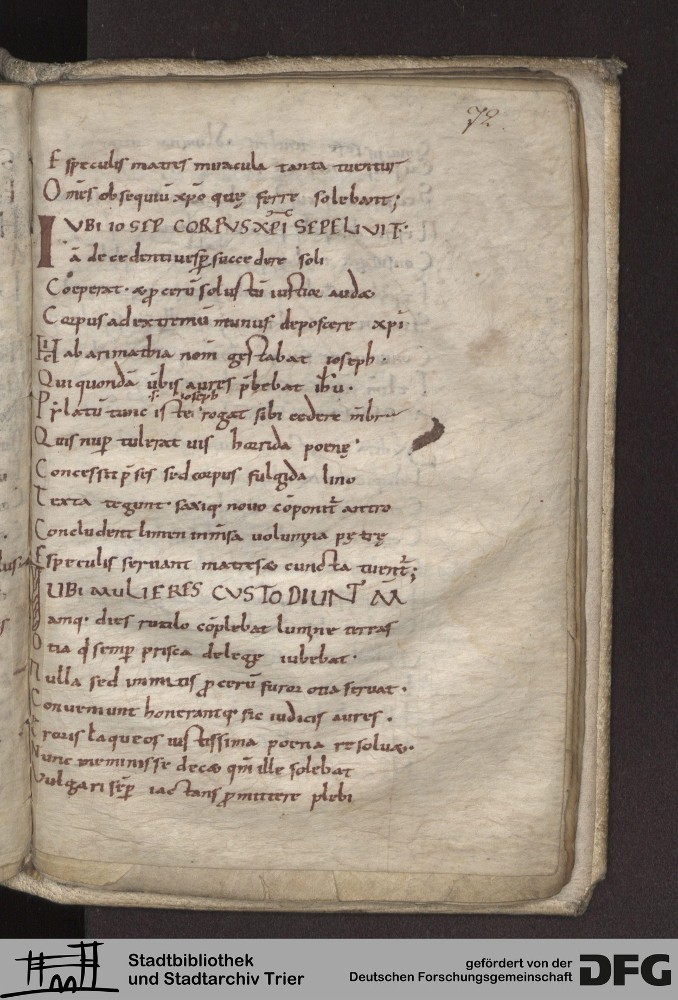 72
E speculis matres miracula tanta tuentur
Om̅es obsequiu̅ xp̅o quę ferre solebant;
UBI IOSEP CORPUS XPI SEPELIVIT·
Ia̅ decedenti uesp̲ succedere soli
Coeperat· & p̲ceru̅ solu
Corpus ad extremu̅ munus deposcere xp̅i
Ab arimathia nom̅ gestabat ioseph·
Qui quonda̅ u̅bis aures p̅bebat ih̅u·
Pylatu̅ tunc iste rogat sibi cedere
s· ioseph
Quis nup̲ tulerat uis horrida poenę·
Concessit p̅ses sed corpus fulgida lino
Texta tegunt· saxiq· nouo co̅ponit̅ antro
Concludent limen inm̅sa uolumina pętrę
E speculis seruant matres & cuncta tuent̅;
UBI MULIERES CUSTODIUNT
Iamq· dies rutilo co̅plebat lumine terras
Otia q̅ semp̲ prisca de lege iubebat·
Nulla sed inmitis p̲ceru̅ furor otia seruat·
Conueniunt honerantq· sic iudicis aures·
Erroris laqueos iustissima poena resoluat·
Nunc meminisse dec& qm̅ ille solebat
Uulgari sep̲ iactans p̲mittere plebi
Stadtbibliothek
und Stadtarchiv Trier
gefördert von der
Deutschen Forschungsgemeinschaft
DFG